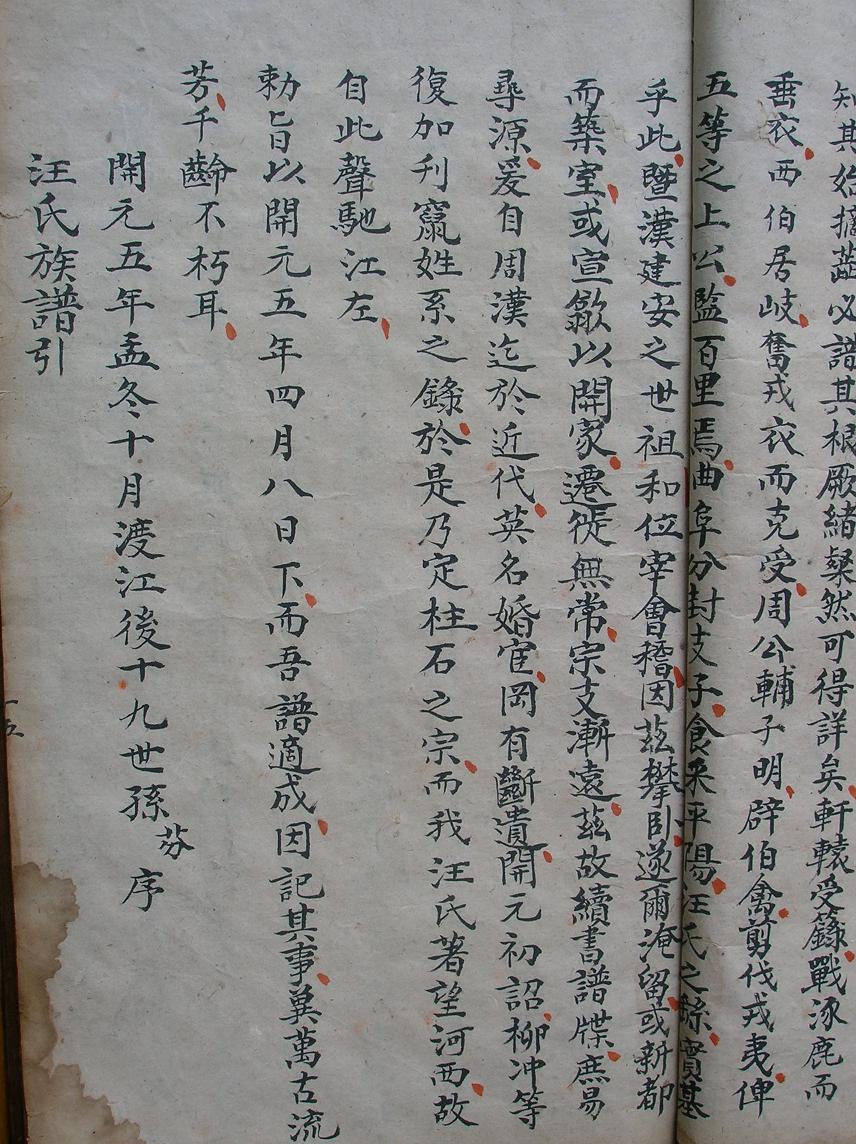 知其始摛蕋必譜其根厥緒粲然可得詳矣軒轅受籙戰涿鹿而
垂衣西伯居岐奮戎衣而克受周公輔子明辟伯禽剪伐戎夷俾
五等之上公監百里焉曲阜分封支子食采平陽汪氏之緜實基
乎此暨漢建安之世祖和位宰會稽因茲攀卧遂爾淹留或新都
而築室或宣歙以開家遷徙無常宗支漸遠茲故續書譜牒庶易
尋源爰自周漢迄於近代英名婚宦罔有斷遺開元初詔柳冲等
復加刋竄姓系之錄於是乃定柱石之宗而我汪氏著望河西故
自此聲馳江左
勅旨以開元五年四月八日下而吾譜適成因記其事兾萬古流
芳千齡不朽耳
開元五年孟冬十月渡江後十九世孫芬序
汪氏族譜引
十五